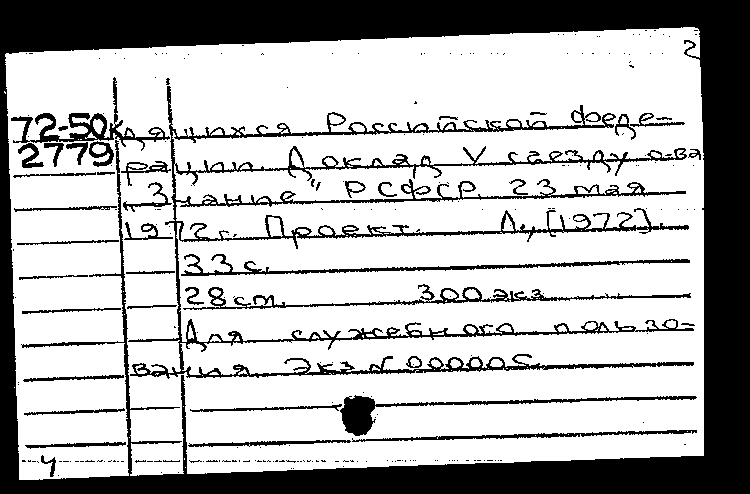 2
72-50к дящихся Российской Феде-
2779 рации. Доклад V съезду о-ва
„Знание" РСФСР 23 мая
1972 г. Проект. Л., [1972].
33 с.
28 см. 300 экз
Для служебного пользо-
вания. Экз N 000005
4